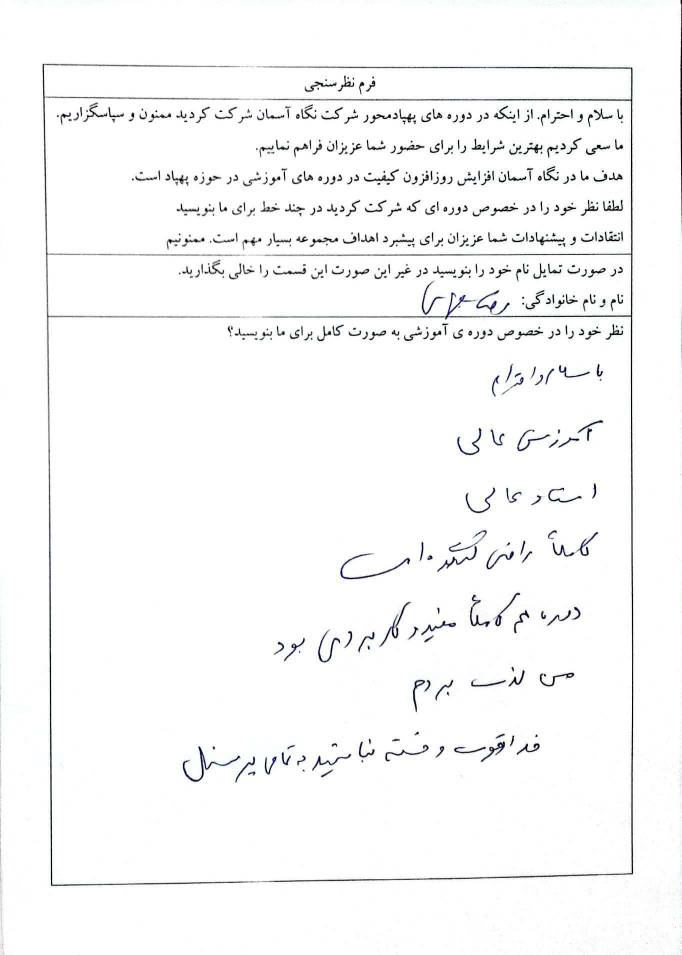 فرم نظرسنجی
با سلام و احترام. از اینکه در دوره های پهپادمحور شرکت نگاه آسمان شرکت کردید ممنون و سپاسگزاریم.
ما سعی کردیم بهترین شرایط را برای حضور شما عزیزان فراهم نماییم.
هدف ما در نگاه آسمان افزایش روزافزون کیفیت در دوره های آموزشی در حوزه پهپاد است.
لطفا نظر خود را در خصوص دوره ای که شرکت کردید در چند خط برای ما بنویسید
انتقادات و پیشنهادات شما عزیزان برای پیشبرد اهداف مجموعه بسیار مهم است. ممنونیم
در صورت تمایل نام خود را بنویسید در غیر این صورت این قسمت را خالی بگذارید.
نام و نام خانوادگی: رضا
نظر خود را در خصوص دوره ی آموزشی به صورت کامل برای ما بنویسید؟
با سلام و احترام
آموزش عالی
استاد عالی
کاملاً راضی کننده است
دوره هم کاملاً مفید و کاربردی بود
من لذت بردم
خدا قوت و خسته نباشید به تمامی پرسنل